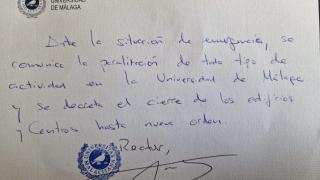 UNIVERSIDAD
DE MÁLAGA
Ante la situación de emergencia, se
comunica la paralización de todo tipo de
actividad en la Universidad de Málaga
y se decreta el cierre de los edificios
y Centros hasta nueva orden.
Rector,